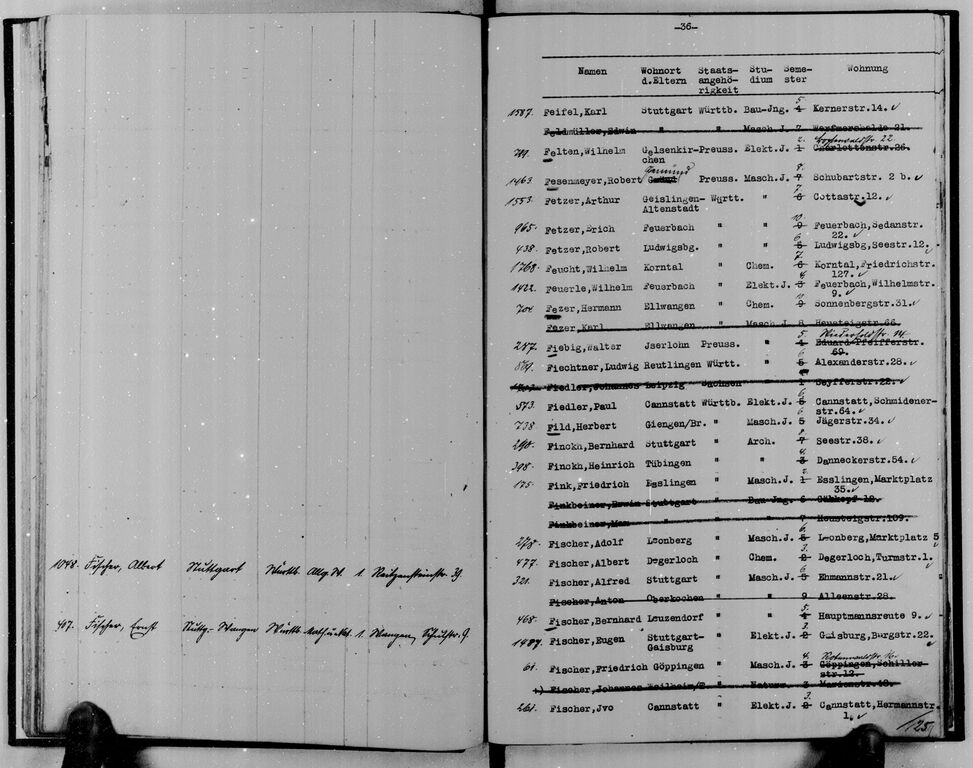 1048. Fischer, Albert Stuttgart Württb. Allg. W. 1. Reitzensteinstr. 39.
407. Fischer, Ernst Stuttg.-Wangen Württb. 1. Wangen, Schulstr. 9.
-36-
Namen Wohnort d.Eltern Staats-angehö-rigkeit Stu-dium Seme-ster Wohnung
1587. Feifel, Karl Stuttgart Württb. Bau-Jng. 5. 4 Kernerstr.14.
Feldmüller, Edwin " " Masch.J. 7
709. Felten, Wilhelm Gelsenkir- Preuss. Elekt.J. 2. 1 Charlottenstr.26.
chen
1463. Fesenmeyer, Robert Gemünd Preuss. Masch.J. 8. 7 Schubartstr. 2 b.
1553. Fetzer, Arthur Geislingen- Württ. " 7. 6 Cottastr.12.
Altenstadt
965. Fetzer, Erich Feuerbach " " 10. 9 Feuerbach, Sedanstr.
22.
438. Fetzer, Robert Ludwigsbg. " " 6. 5 Ludwigsbg, Seestr.12.
1768. Feucht, Wilhelm Korntal " Chem. 7. 6 Korntal, Friedrichstr.
127.
1422. Feuerle, Wilhelm Feuerbach " Elekt.J. 4. 3 Feuerbach, Wilhelmstr.
9.
704 Fezer, Hermann Ellwangen " Chem. 9 Sonnenbergstr.31.
Fezer, Karl Ellwangen " Masch.J. 8 Heusteigstr.66.
Wiederholdstr. 14
247. Fiebig, Walter Jserlohn Preuss. " 5. 4 Eduard Pfeifferstr.
69.
Fiechtner, Ludwig Reutlingen Württ. " 5 Alexanderstr.28.
Fiedler, Johannes Leipzig Sachsen " 1 Seyfferstr.22.
573. Fiedler, Paul Cannstatt Württb. Elekt.J. 6. 5 Cannstatt, Schmidener-
str.64.
738 Fild, Herbert Giengen/Br. " Masch.J. 6 5 Jägerstr.34.
290. Finckh, Bernhard Stuttgart " Arch. 8. 7 Seestr.38.
398. Finckh, Heinrich Tübingen " " 4. 3 Danneckerstr.54.
175. Fink, Friedrich Esslingen " Masch.J. 2. 1 Esslingen, Marktplatz
35.
Finkbeiner, Erwin Stuttgart " Bau-Jng. 6
Finkbeiner, Max " " " 7 Heusteigstr.109.
278. Fischer, Adolf Leonberg " Masch.J. 6. 5 Leonberg, Marktplatz 5
477. Fischer, Albert Degerloch " Chem. 3. 2 Degerloch, Turmstr.1.
321. Fischer, Alfred Stuttgart " Masch.J. 6 5 Ehmannstr.21.
Fischer, Anton Oberkochen " " 9 Alleenstr.28.
468. Fischer, Bernhard Leuzendorf " " 5. 4 Hauptmannsreute 9.
1487. Fischer, Eugen Stuttgart- " Elekt.J. 3. 2 Gaisburg, Burgstr.22.
Gaisburg
61. Fischer, Friedrich Göppingen " Masch.J. 4. 3 Göppingen, Schiller
str.12.
Fischer, Johannes Weilheim/T " Naturw. 3 Marienstr.48.
261. Fischer, Jvo Cannstatt " Elekt.J. 3. 2 Cannstatt, Hermannstr.
1.
125